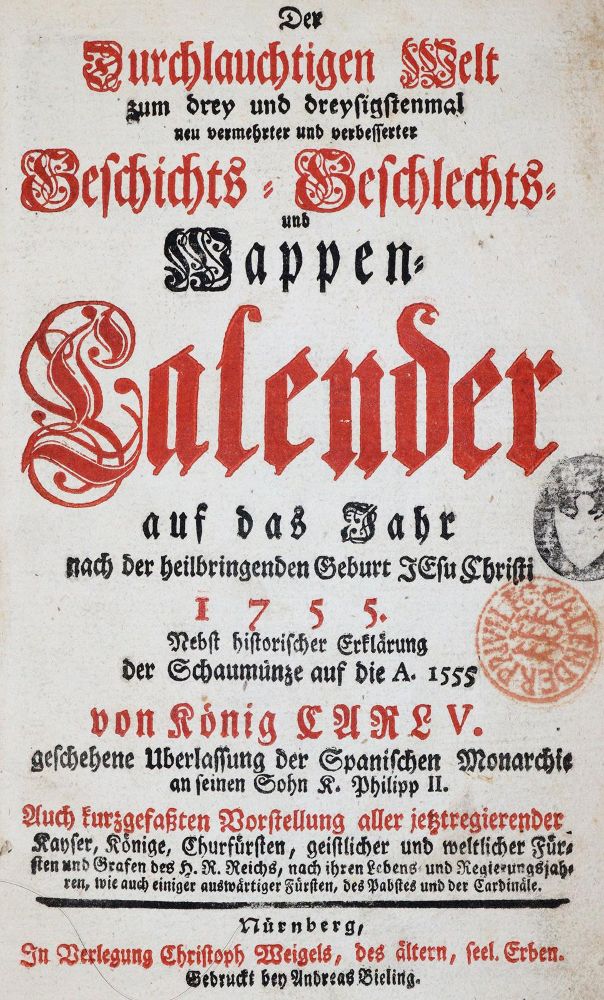 Der
Durchlauchtigen Welt
zum drey und dreysigstenmal
neu vermehrter und verbesserter
Geschichts- Geschlechts-
und
Wappen-
Calender
auf das Jahr
nach der heilbringenden Geburt JEsu Christi
1755.
Nebst historischer Erklärung
der Schaumünze auf die A. 1555
von König CARL V.
geschehene Uberlassung der Spanischen Monarchie
an seinen Sohn K. Philipp II.
Auch kurzgefaßten Vorstellung aller jetztregierender
Kayser, Könige, Churfürsten, geistlicher und weltlicher Für-
sten und Grafen des H. R. Reichs, nach ihren Lebens- und Regierungsjah-
ren, wie auch einiger auswärtiger Fürsten, des Pabstes und der Cardinäle.
Nürnberg,
In Verlegung Christoph Weigels, des ältern, seel. Erben.
Gedruckt bey Andreas Bieling.
CALENDER PRIVILE